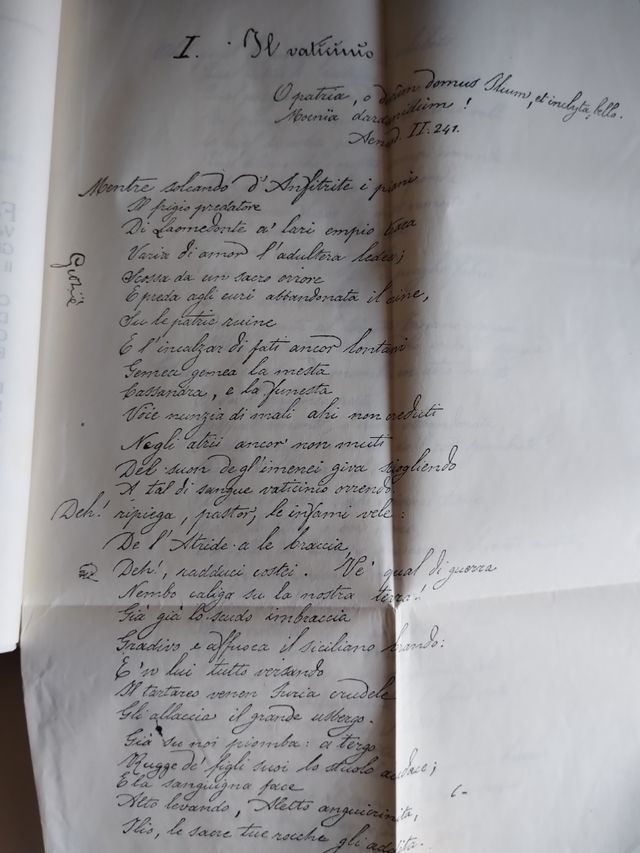 I. Il vaticinio
O patria, o divûm domus Ilium, et inclyta bello
Moenia dardanidûm!
Aeneid. II. 241.
Mentre solcando d'Anfitrite i piani
Il frigio predatore
Di Laomedonte a' lari empio traea
Varia di amor l'adultera ledea;
Scossa da un sacro orrore
E preda agli euri abbandonata il crine,
Su le patrie ruine
E l'incalzar di fati ancor lontani
Gemea gemea la mesta
Cassandra, e la funesta
Voce nunzia di mali ahi non creduti
Negli atrii ancor non muti
Del suon degl'imenei giva sciogliendo
A tal di sangue vaticinio orrendo.
Deh! ripiega, pastor, le infami vele:
De l'Atride a le braccia,
Deh!, radduci costei. Ve' qual di guerra
Nembo caliga su la nostra terra!
Già già lo scudo imbraccia
Gradivo, e affuoca il siciliano brando:
E 'n lui tutto versando
Il tartareo venen Furia crudele
Gli allaccia il grande usbergo.
Già su noi piomba: a tergo
Rugge de' figli suoi lo stuolo audace;
E la sanguigna face
Alto levando, Aletto anguicrinita,
Ilio, le sacre tue rocche gli addita.